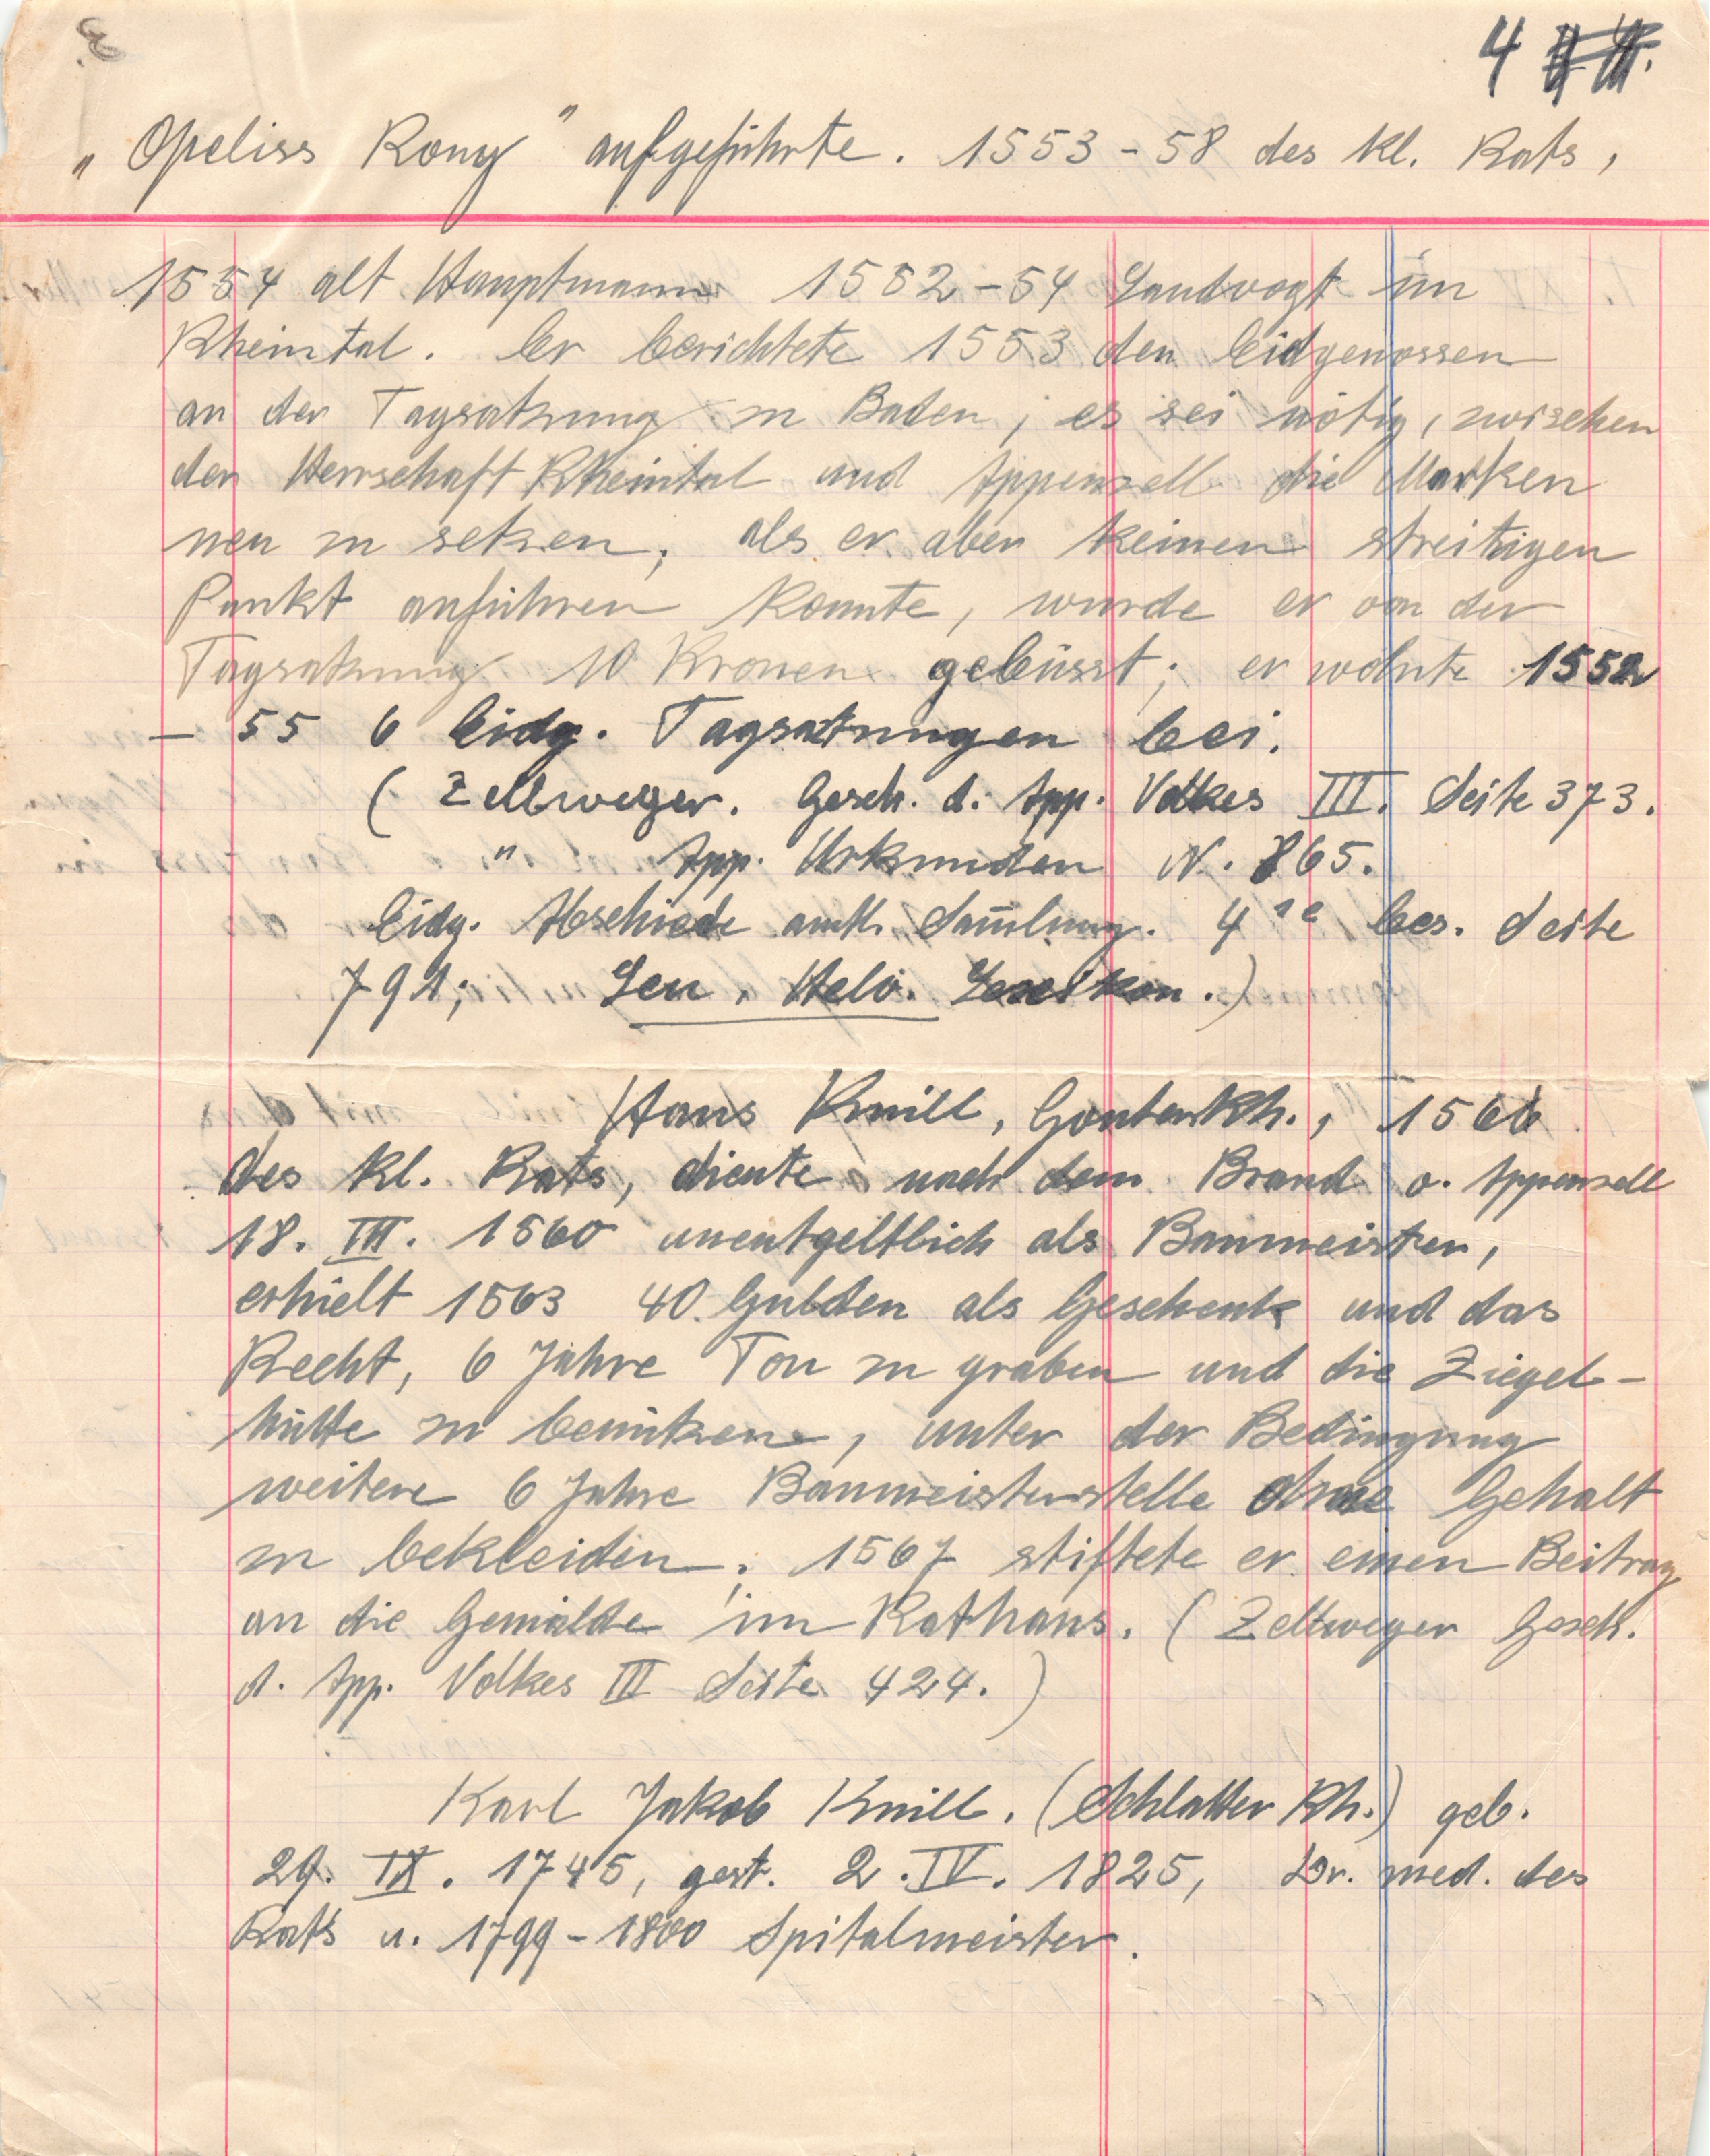 4
„Opeliss Rony" aufgeführte. 1553-58 des kl. Rats,
1554 alt Hauptmann 1552-54 Landvogt im
Rheintal. Er berichtete 1553 den Eidgenossen
an der Tagsatzung zu Baden, es sei nötig, zwischen
der Herrschaft Rheintal und Appenzell die Marken
neu zu setzen; als er aber keinen streitigen
Punkt anführen konnte, wurde er von der
Tagsatzung 10 Kronen gebüsst; er wohnte 1552
- 55 6 Eidg. Tagsatzungen bei.
(Zellweger. Gesch. d. App. Volkes III. Seite 373.
" App. Urkunden N. 865.
Eidg. Abschiede amtl. Sam̄lung. 4 1e bes. Seite
791; Leu, Helv. Lexikon.)
Hans Knill, Gontenrh., 1566
des kl. Rats, diente nach dem Brand v. Appenzell
18. III. 1560 unentgeltlich als Baumeister,
erhielt 1563 40 Gulden als Geschenk und das
Recht, 6 Jahre Ton zu graben und die Ziegel-
hütte zu benützen, unter der Bedingung
weitere 6 Jahre Baumeisterstelle ohne Gehalt
zu bekleiden; 1567 stiftete er einen Beitrag
an die Gemälde im Rathaus. (Zellweger Gesch.
d. App. Volkes III Seite 424.)
Karl Jakob Knill. (Schlatter Rh.) geb.
29. IX. 1745, gest. 2. IV. 1825, Dr. med. des
Rats u. 1799-1800 Spitalmeister.